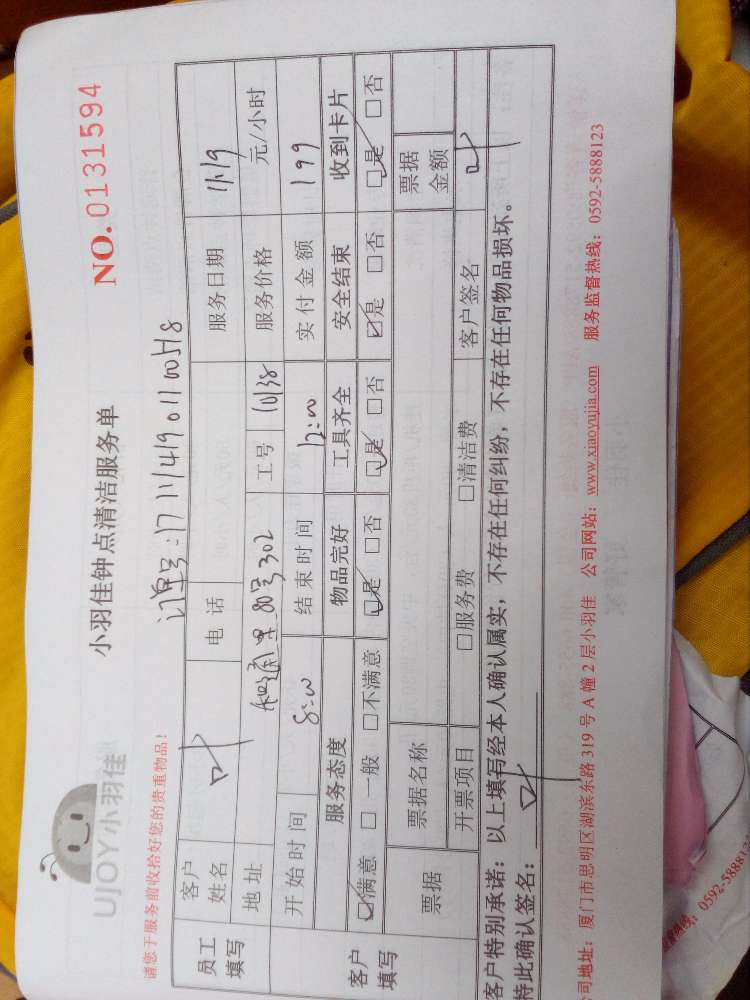 UJOY小羽佳
小羽佳钟点清洁服务单
NO.0131594
请您于服务前收拾好您的贵重物品!
订单号:1711141901100518
员工填写
客户姓名 叶 电 话 服务日期 11.19
地 址 80号302 工号 10138 服务价格 元/小时
客户填写
开 始 时 间 8:00 结 束 时 间 12:00 实 付 金 额 199
服务态度 物品完好 工具齐全 安全结束 收到卡片
☑满意 □ 一般 □不满意 ☑是 □否 ☑是 □否 ☑是 □否 ☑是 □否
票据 票据名称 票据金额
开票项目 □服务费 □清洁费 客户签名 叶
客户特别承诺:以上填写经本人确认属实,不存在任何纠纷,不存在任何物品损坏。
特此确认签名:叶
公司地址:厦门市思明区湖滨东路 319 号 A 幢 2 层小羽佳 公司网站:www.xiaoyujia.com 服务监督热线:0592-5888123
0592-5888123